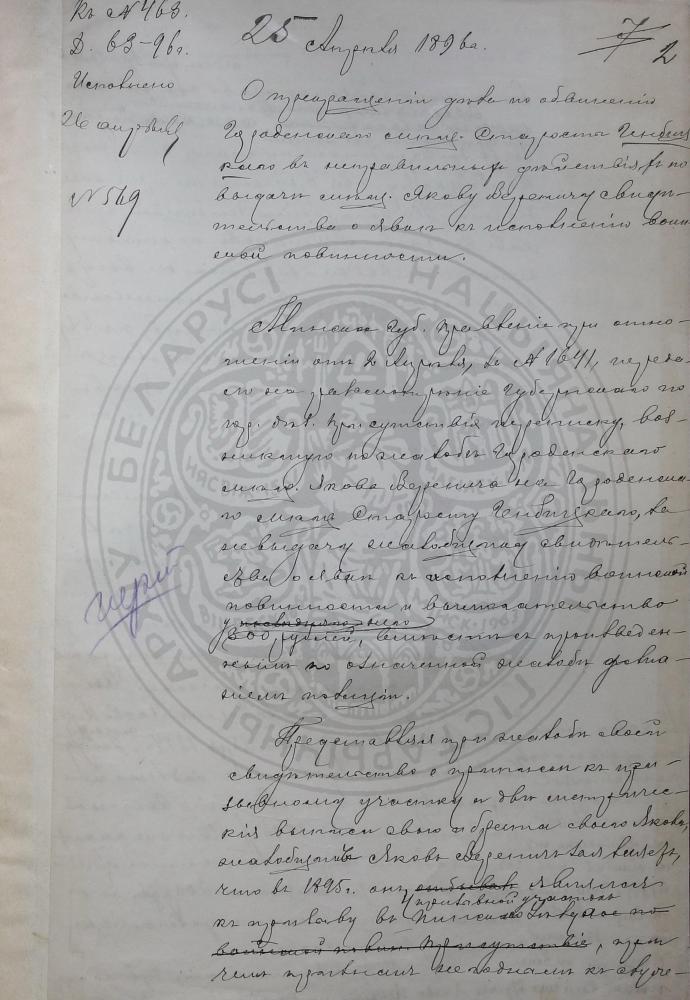 къ № 463.
Д. 63-96 г.
Исполнено
26 апрѣля
№ 569
25 Апрѣля 1896 г.
7
2
О прекращеніи дѣла по обвиненію
Городенскаго мѣщ. Старосты
въ неправильныхъ дѣйствіяхъ по
выдачѣ мѣщ. Якову Вереничу свидѣ-
тельства о явкѣ къ исполненію воин
ской повинности.
Минское Губ. Правленіе при отно-
шеніи отъ 2 Апрѣля, за № 1641, переда-
ло на разсмотрѣніе Губернскаго по
гор. дѣл. присутствія переписку, воз-
никшую по жалобѣ Городенскаго
мѣщ. Якова Веренича на Городенска-
го мѣщ. Старосту за
невыдачу жалобщику свидѣтель-
ства о явкѣ къ исполненію воинской
повинности и вымогательство
у
300 рублей, вмѣстѣ съ произведен-
нымъ по означенной жалобѣ дозна-
ніемъ полиціи.
Представляя при жалобѣ своей
свидѣтельство о припискѣ къ при-
зывному участку и двѣ метричес-
кія выписи свою и брата своего Якова,
жалобщикъ Яковъ Вереничъ заявляетъ,
что въ 1895 г. онъ отбывалъ являлся
призывной участокъ
къ призыву въ по
воинской повин. Присутствіе, при
чемъ
АРХІЎ БЕЛАРУСІ
НАЦЫЯНАЛЬНЫ
ГІСТАРЫЧНЫ
МІНСК